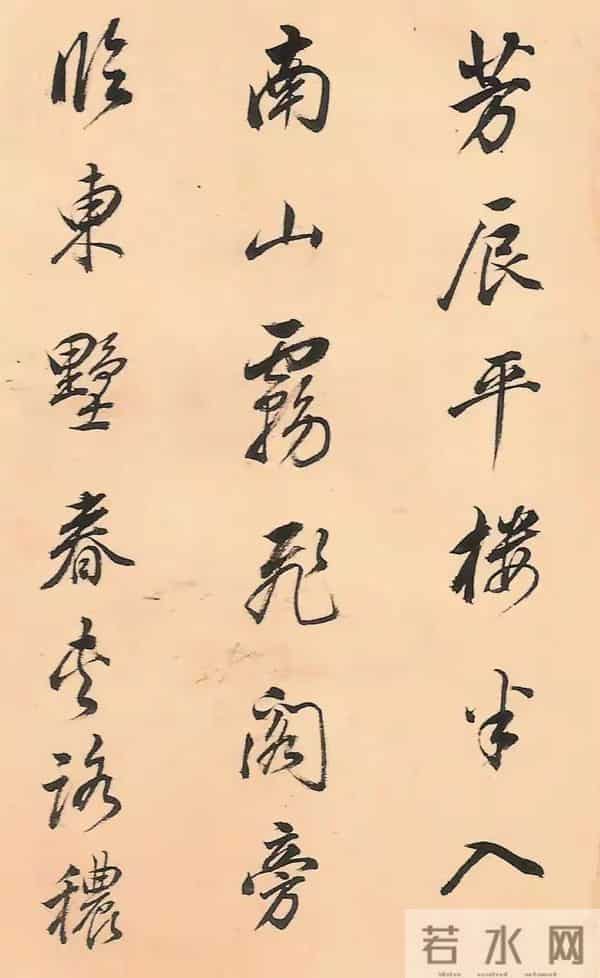 芳辰平楼半入
南山霧飛閣旁
臨東墅春夾路穠
若水网